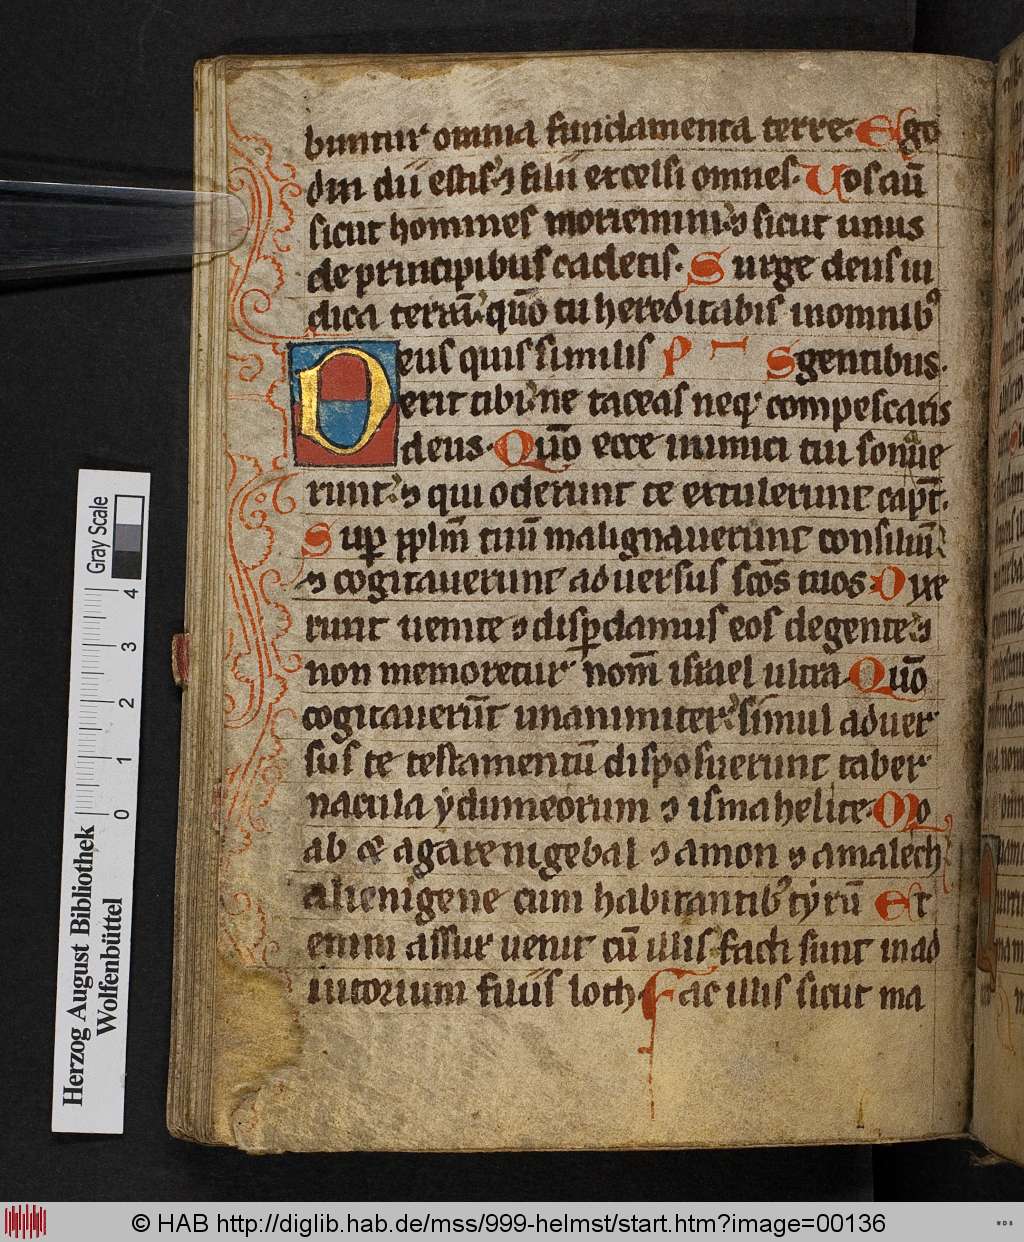 buntur omnia fundamenta terre· Ego
dixi dii estis ⁊ filii excelsi omnes· Uos aū
sicut homines moriemini· ⁊ sicut unus
de principibus cadetis· Surge deus iu
dica terrā· quō tu hereditabis inomnibꝰ
Deus quis similis P S gentibus·
erit tibi· ne taceas neqꝫ compescaris
deus· Quō ecce inimici tui sonue
runt· ⁊ qui oderunt te extulerunt cap̄t·
Suꝑ pplm̄ tuū malignauerunt consiliū
⁊ cogitauerunt aduersus scōs tuos· Dixe
runt uenite ⁊ disꝑdamus eos degente· ⁊
non memoretur nom̄ israel ultra· Quō
cogitauerūt unanimiter· simul aduer
sus te testamentū disposuerunt taber
nacula ẏdumeorum ⁊ ismahelite· Mo
ab & agareni gebal ⁊ amon ⁊ amalech
alienigene cum habitantibꝰ tẏrū Et
enim assur uenit cū illis facti sunt inad
iutorium filiis loth· Fac illis sicut ma
Herzog August Bibliothek
Wolfenbüttel
0 1 2 3 4
Gray Scale
© HAB http://diglib.hab.de/mss/999-helmst/start.htm?image=00136